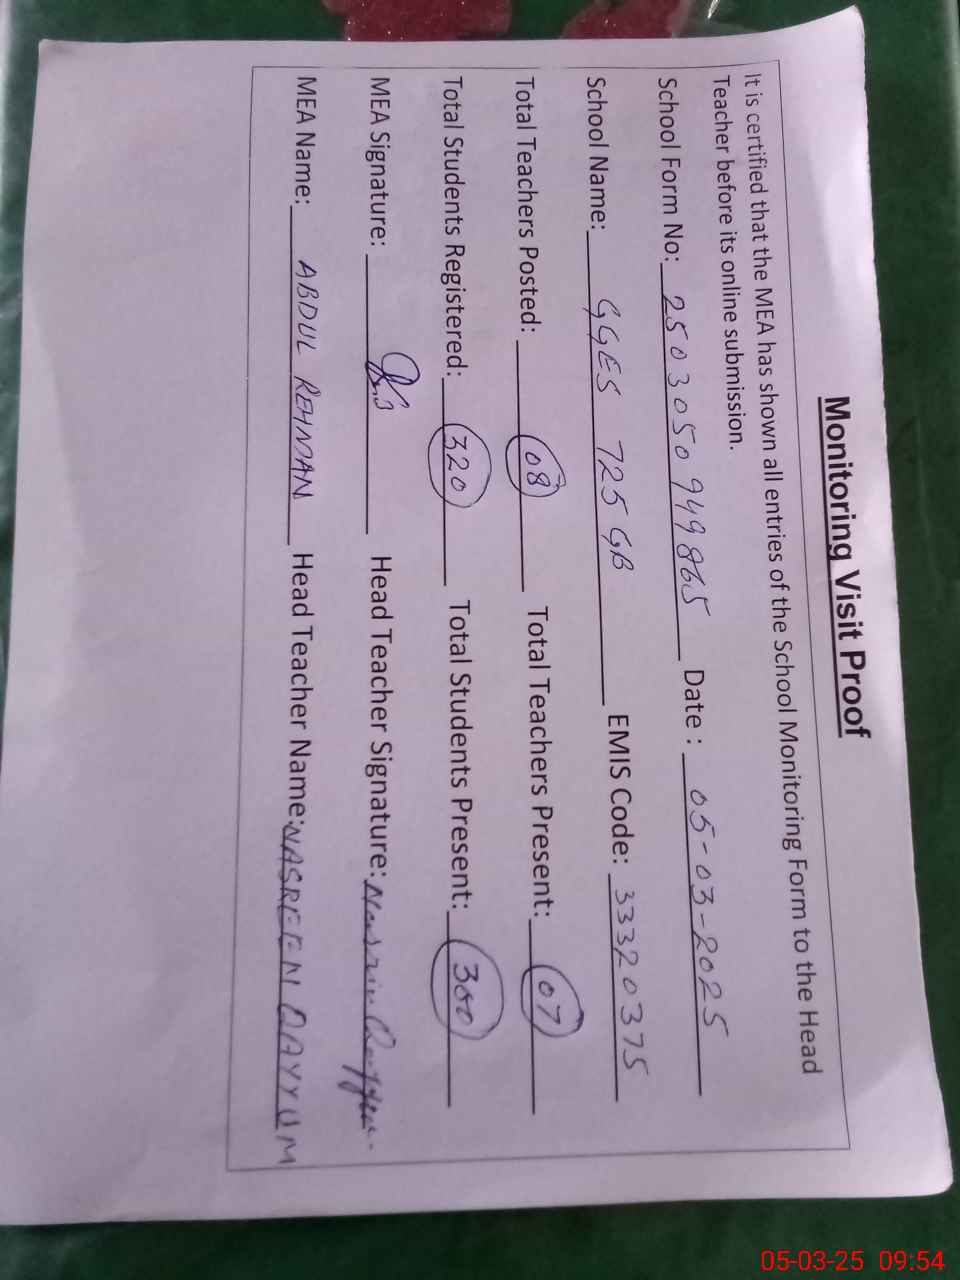 Monitoring Visit Proof
It is certified that the MEA has shown all entries of the School Monitoring Form to the Head
Teacher before its online submission.
School Form No: 2503050949865 Date : 05-03-2025
School Name: GGES 725 GB EMIS Code: 33320375
Total Teachers Posted: 08 Total Teachers Present: 07
Total Students Registered: 320 Total Students Present: 300
MEA Signature: Head Teacher Signature:
MEA Name: ABDUL REHMAN Head Teacher Name: NASREEN QAYYUM
05-03-25 09:54